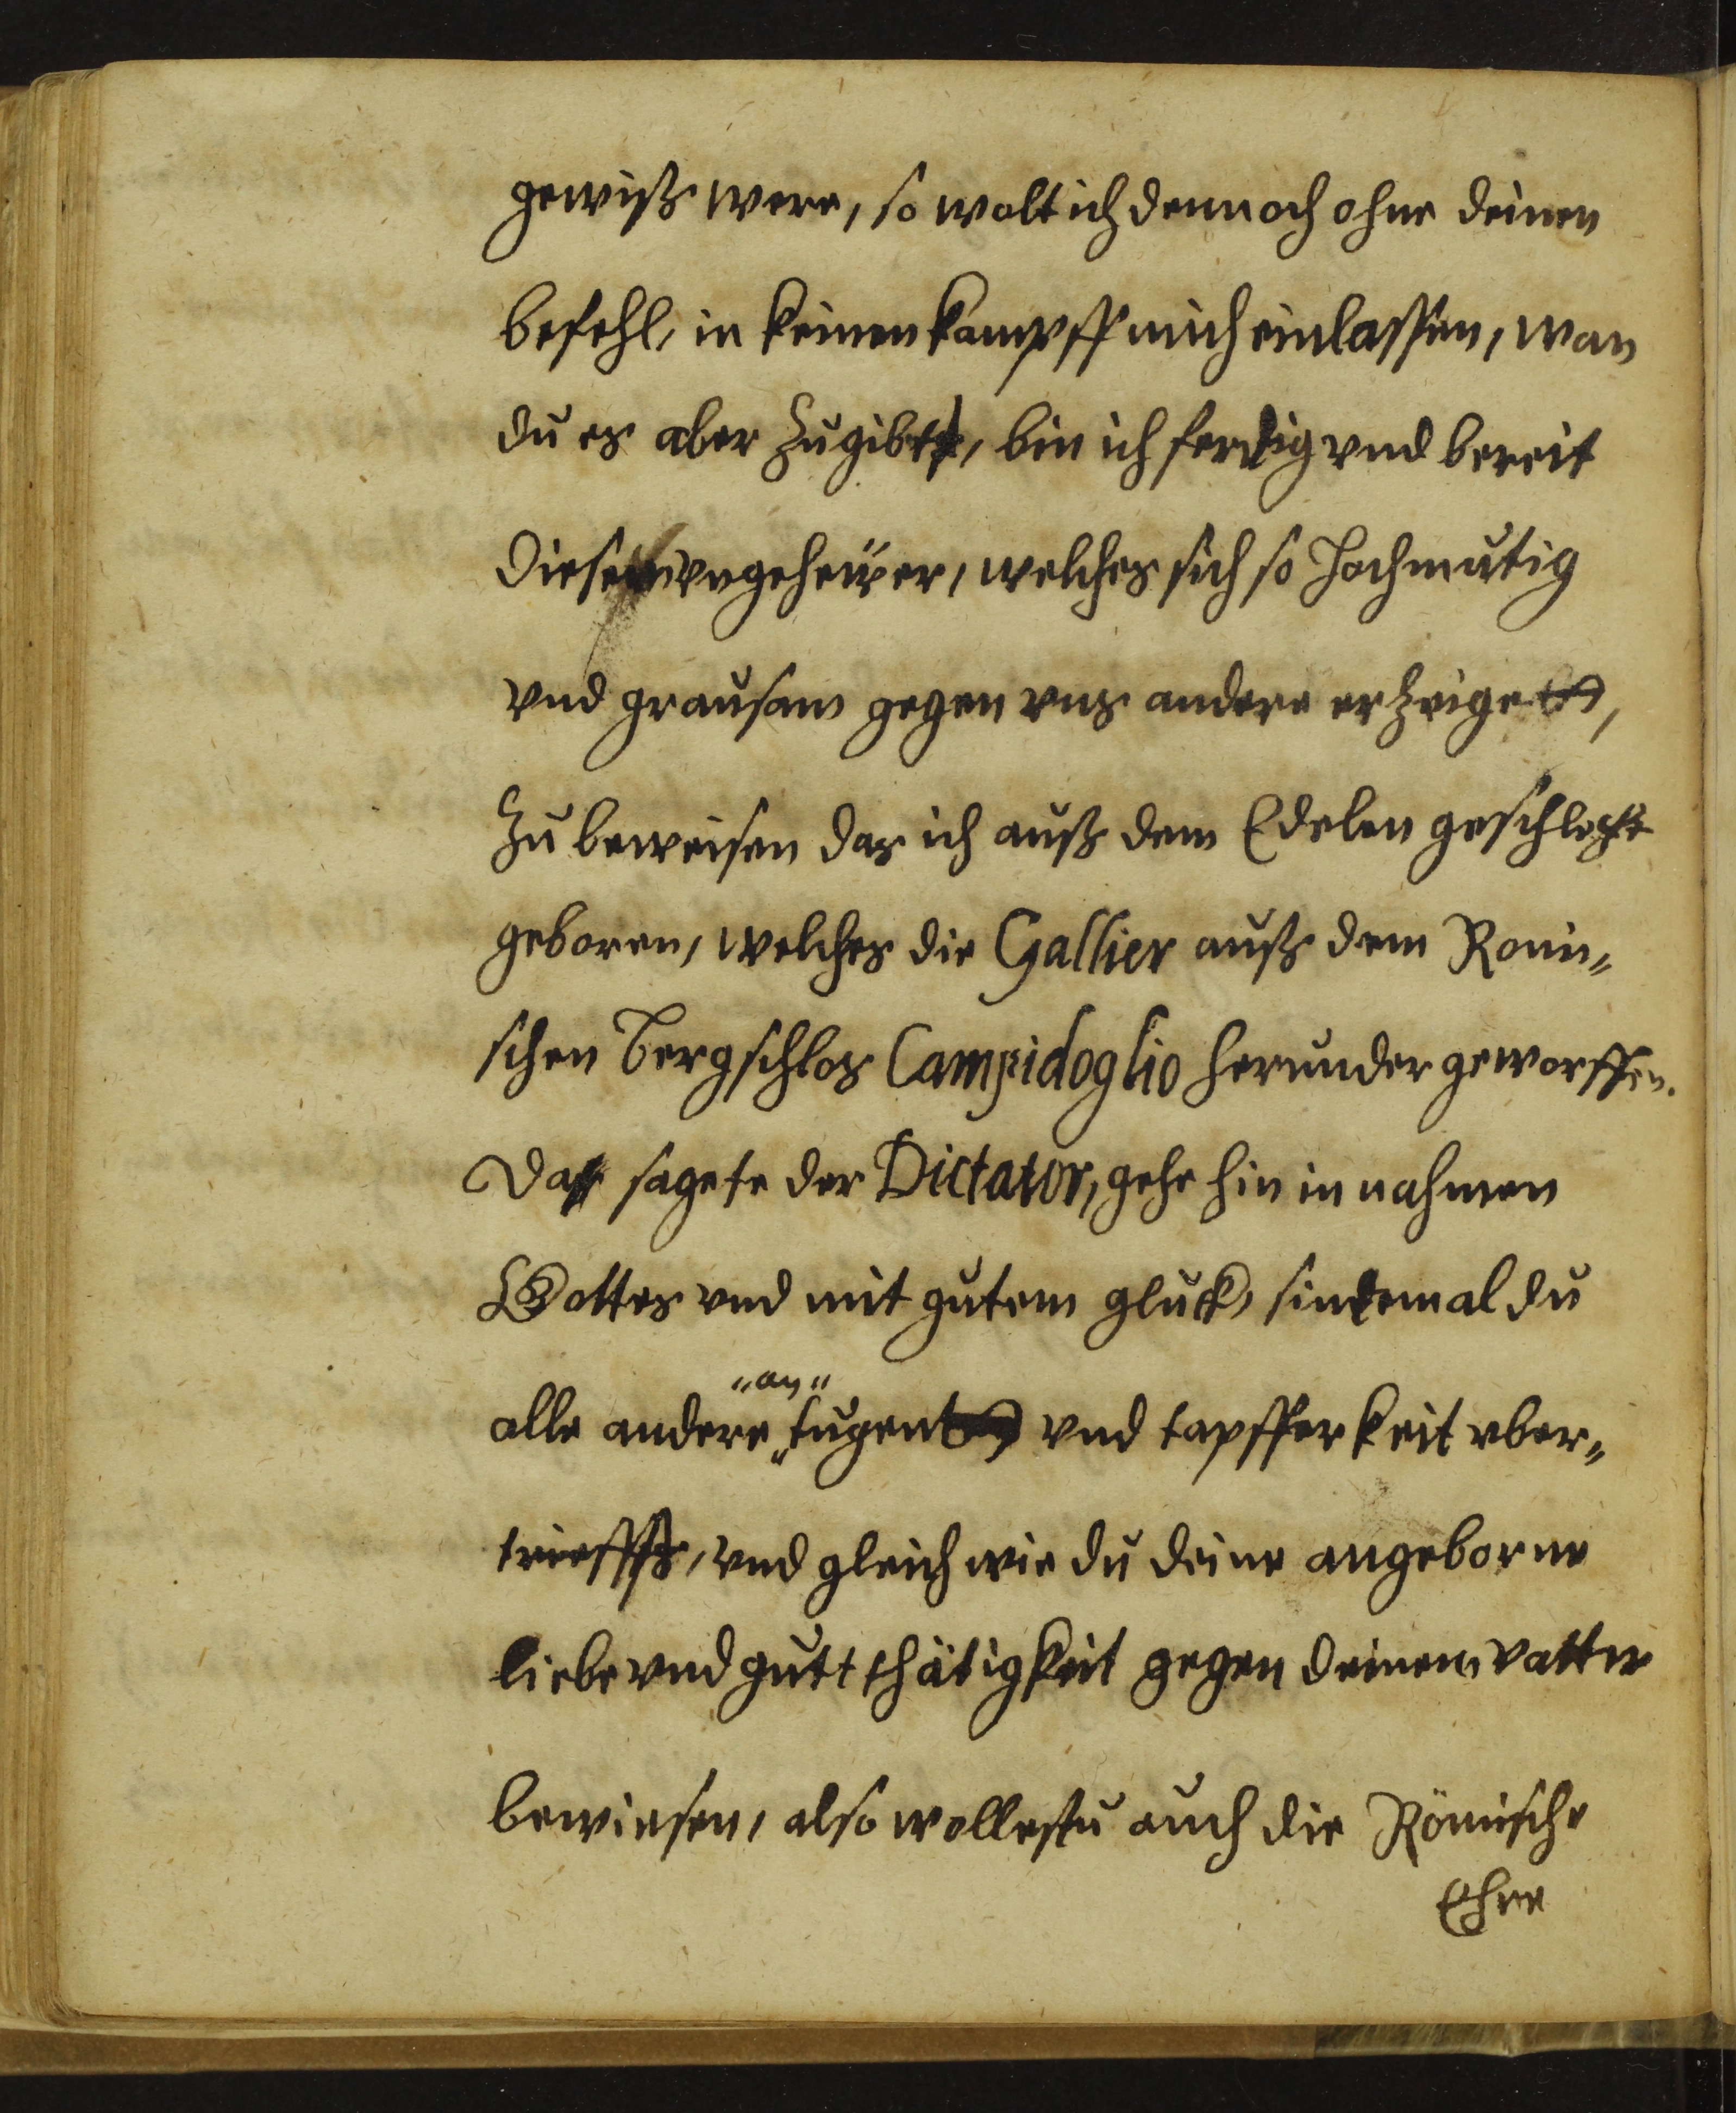 gewiß were, so wolt ich dennoch ohne deinen
befehl, in keinen kampff mich einlassen, wan
du es aber zugibst, bin ich fertig vnd bereit
diesem vngeheüer, welches sich so hochmutig
vnd grausam gegen vns andere erzeiget,
zu beweisen das ich auß dem Edelen geschlecht
geboren, welches die Gallier auß dem Romi„
schen Bergschlos Campidoglio herunder geworffen.
Da sagete der Dictator, gehe hin in nahmen
Gottes vnd mit gutem gluck, sintemal du
„an„
alle andere „tugent vnd tapfferkeit vber„
trieffst, vnd gleich wie du deine angeborne
liebe vnd gutt thätigkeit gegen deinem vatter
bewiesen, also wollestu auch die Römische
Ehre